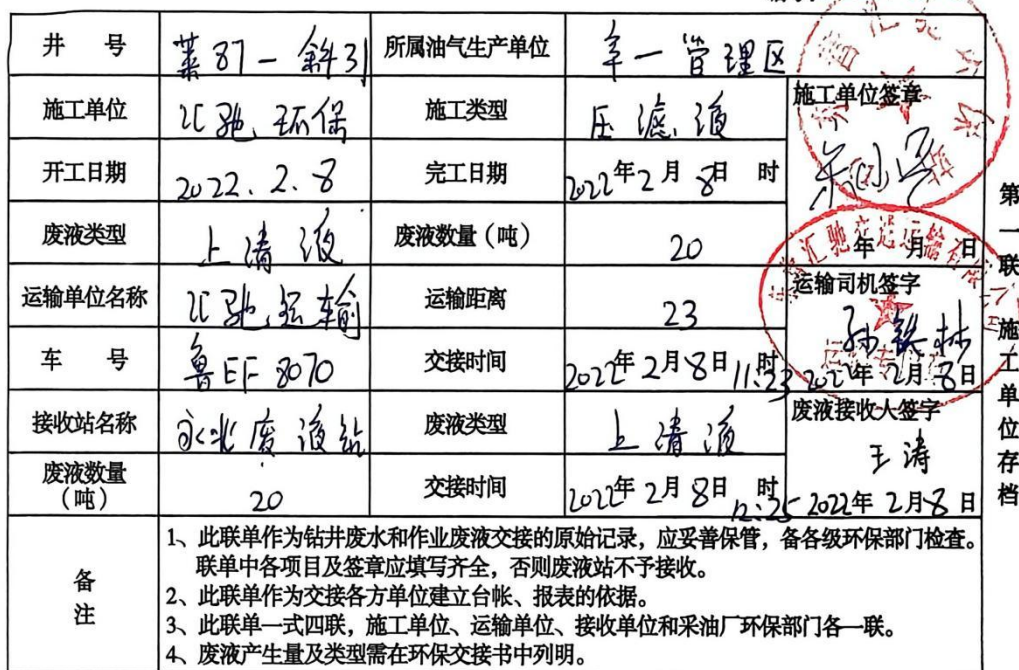 井 号 莱87-斜31 所属油气生产单位 羊一管理区
施工单位 汇驰环保 施工类型 压滤液 施工单位签章
开工日期 2022.2.8 完工日期 2022年2月8日 时
废液类型 上清液 废液数量（吨） 20 年 月 日
运输单位名称 汇驰运输 运输距离 23 运输司机签字
孙铁林
车 号 鲁EF8070 交接时间 2022年2月8日11:23时 2022年2月8日
接收站名称 永北废液站 废液类型 上清液 废液接收人签字
王涛
废液数量（吨） 20 交接时间 2022年2月8日12:25时 2022年2月8日
备注
1、此联单作为钻井废水和作业废液交接的原始记录，应妥善保管，备各级环保部门检查。
联单中各项目及签章应填写齐全，否则废液站不予接收。
2、此联单作为交接各方单位建立台帐、报表的依据。
3、此联单一式四联，施工单位、运输单位、接收单位和采油厂环保部门各一联。
4、废液产生量及类型需在环保交接书中列明。
第一联 施工单位存档